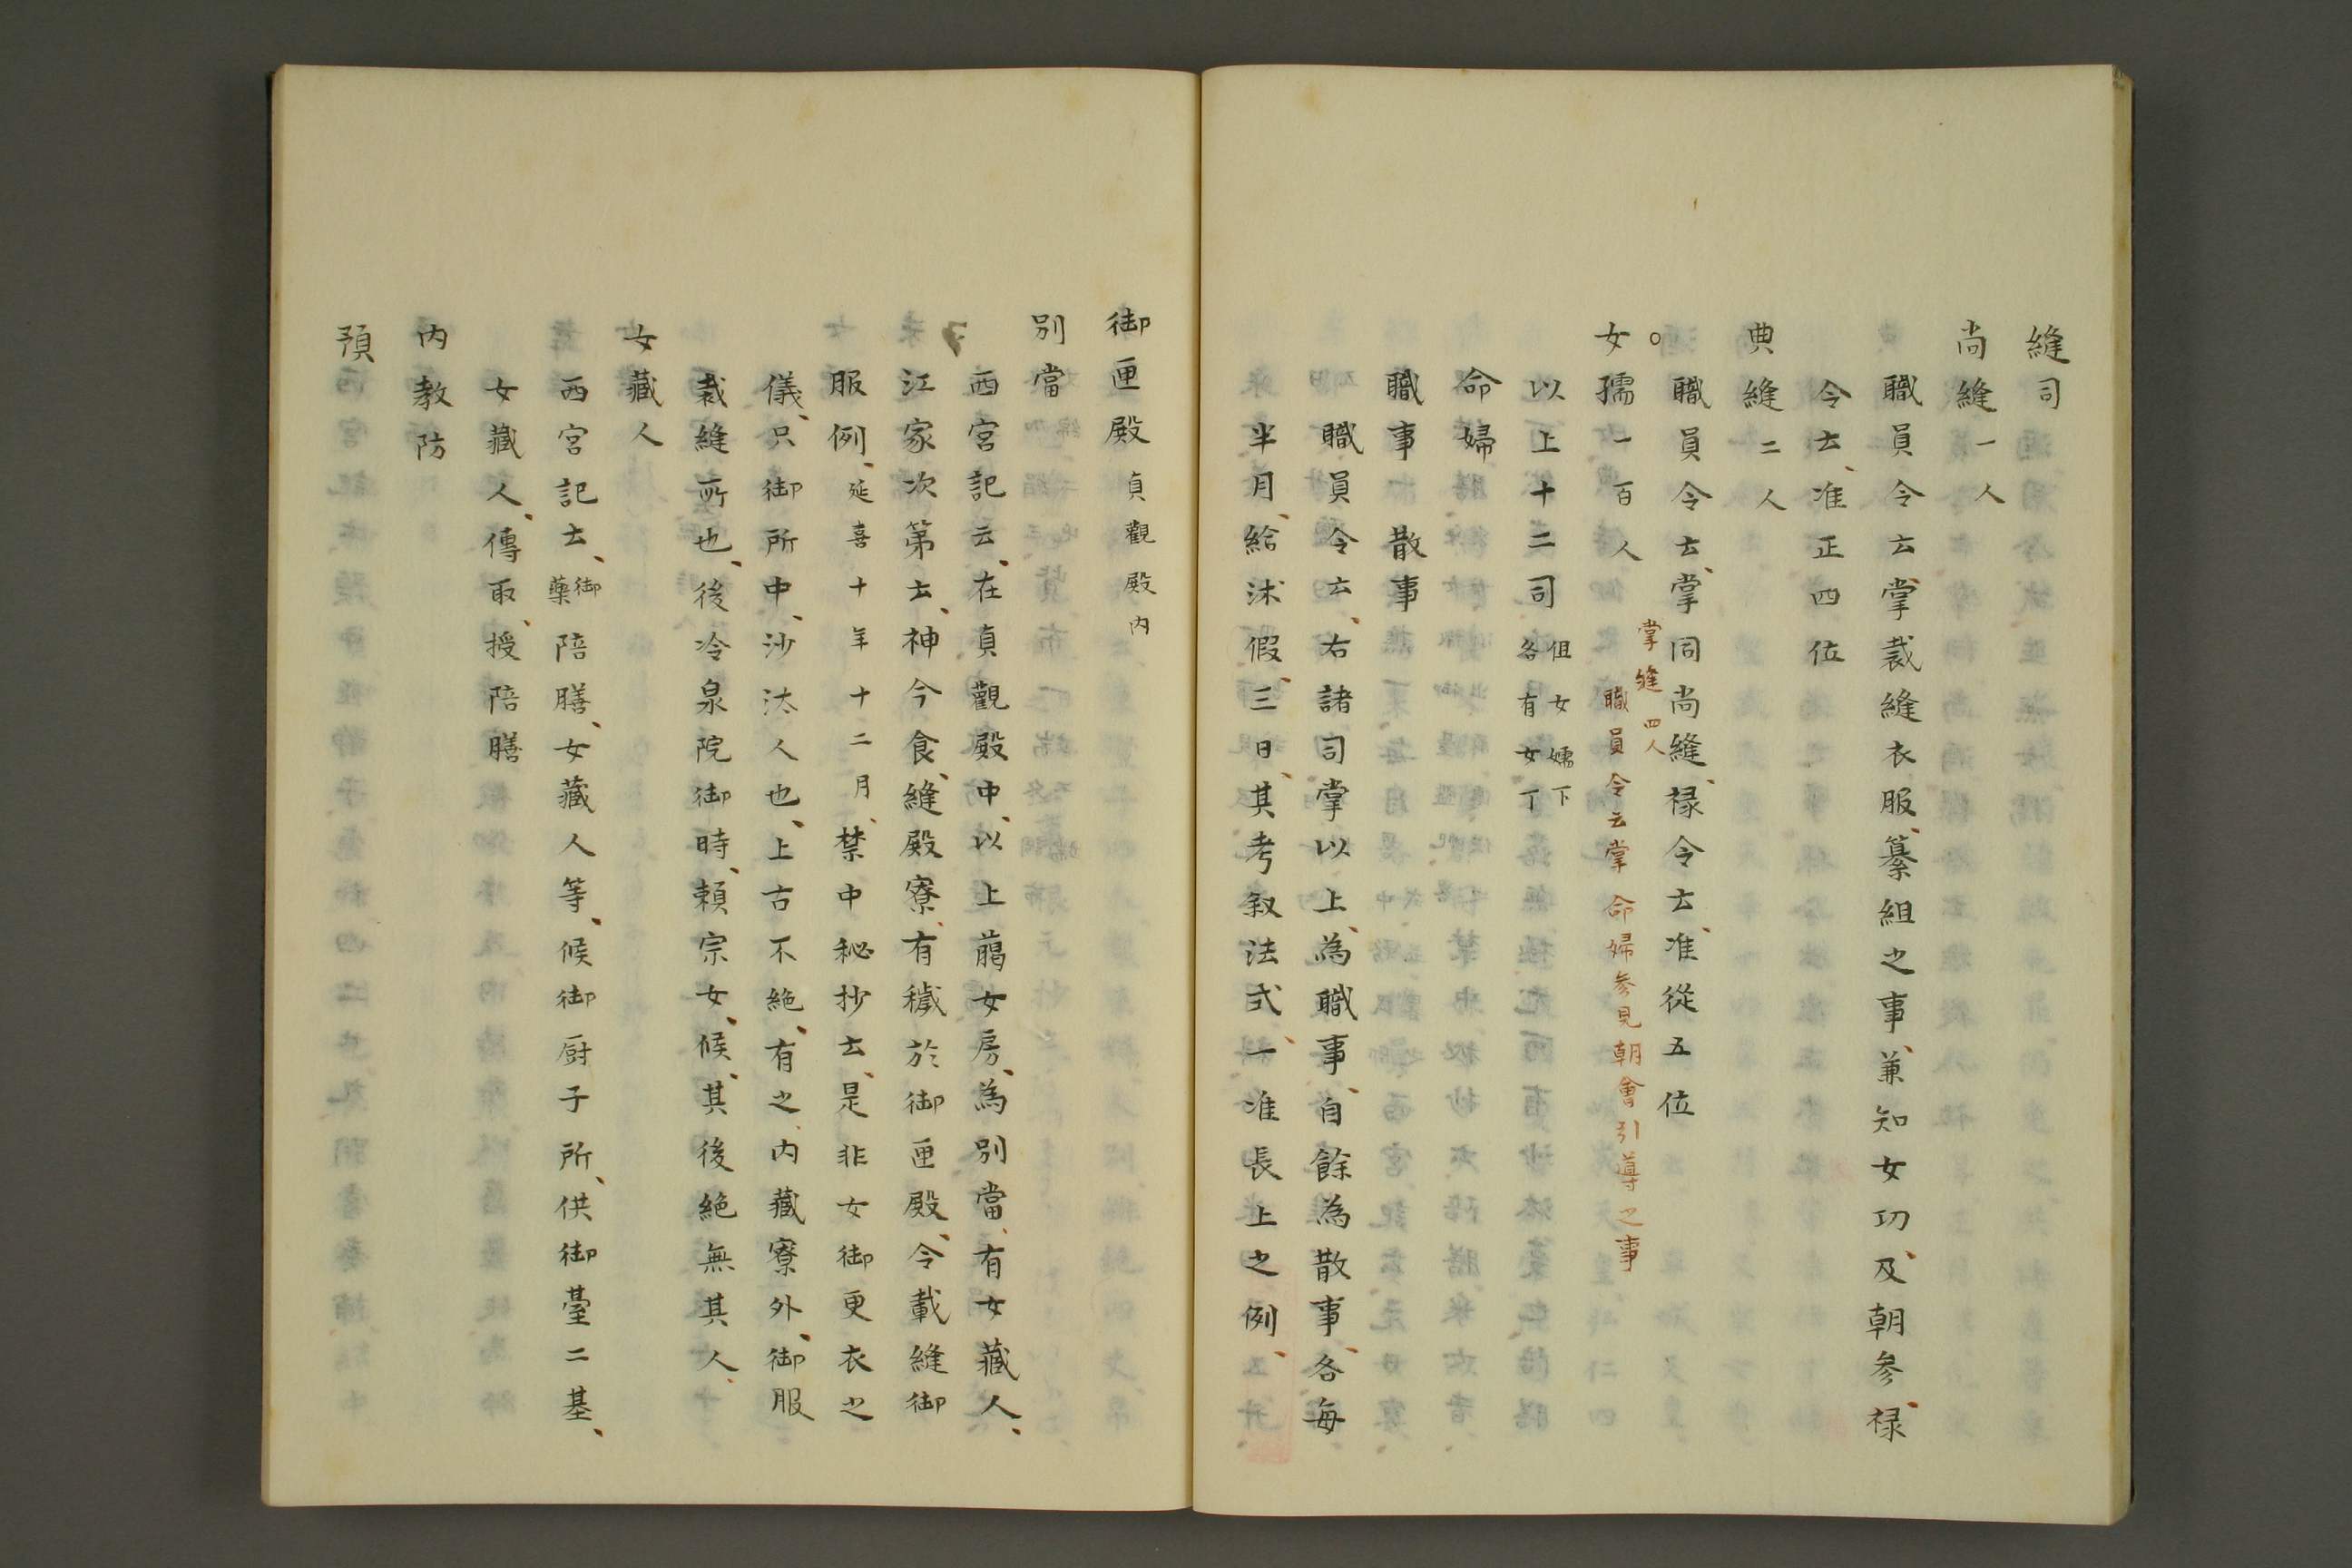 縫司
尚縫一人
職員令云、掌裁縫衣服、纂組之事、兼知女功、及朝參、禄
令云、准正四位
典縫二人
職員令云、掌同尚縫、禄令云、准從五位
○掌縫四人
職員令云掌命婦参見朝會引導之事
女孺一百人
以上十二司
但女嬬下
各有女丁
命婦
職事散事
職員令云、右諸司掌以上、為職事、自餘為散事、各毎
半月、給沐假、三日、其考叙法式、一准長上之例、
御匣殿貞觀殿内
別當
西宮記云、在貞觀殿中、以上﨟女房、為別當、有女藏人、
江家次第云、神今食、縫殿寮、有穢於御匣殿、令裁縫御
服例、延喜十年十二月、禁中秘抄云、是非女御更衣之
儀、只御所中、沙汰人也、上古不絶、有之、内藏寮外、御服
裁縫所也、後冷泉院御時、頼宗女、候、其後絶無其人、
女藏人
西宮記云、
御
藥
陪膳、女藏人等、候御厨子所、供御臺二基、
女藏人、傳取、授陪膳
内教防
預